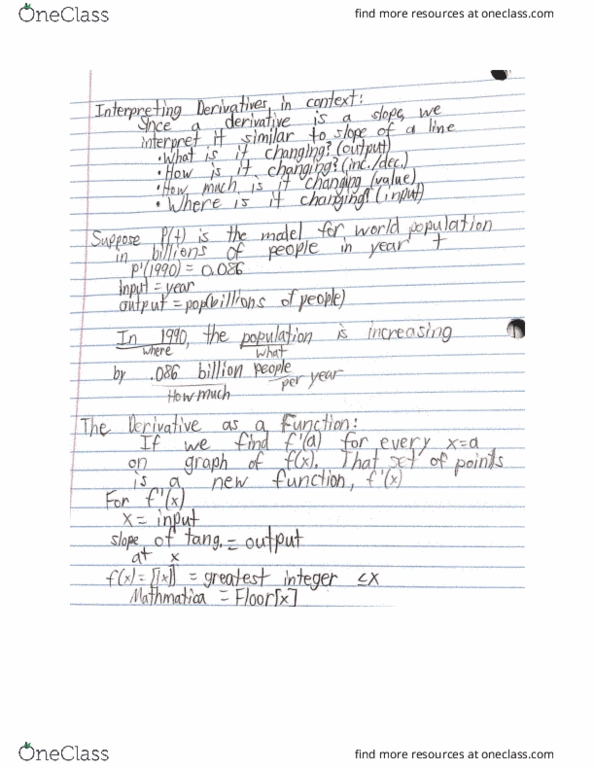 OneClass
find more resources at oneclass.com
Interpreting Derivatives in context:
Since a derivative is a slope, we
interpret it similar to slope of a line
• What is it changing? (output)
• How is it changing? (inc./dec.)
• How much is it changing (value)
• Where is it changing? (input)
Suppose P(t) is the model for world population
in billions of people in year t
P'(1990) = 0.086
input = year
output = pop(billions of people)
In 1990, the population is increasing
where what
by .086 billion people
per year
How much
The Derivative as a Function:
If we find f'(a) for every x=a
on graph of f(x). That set of points
is a new function, f'(x)
For f'(x)
x = input
slope of tang. = output
at x
f(x) = [[x]] = greatest integer ≤x
Mathmatica = Floor[x]
OneClass
find more resources at oneclass.com